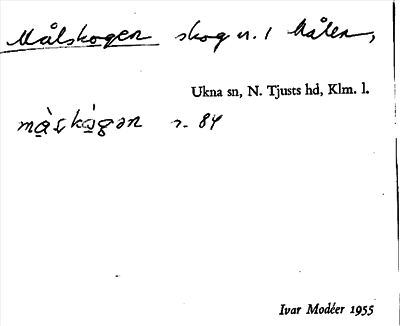 Målskogen skog n. / Målen,
Ukna sn, N. Tjusts hd, Klm. l.
s. 84
Ivar Modéer 1955